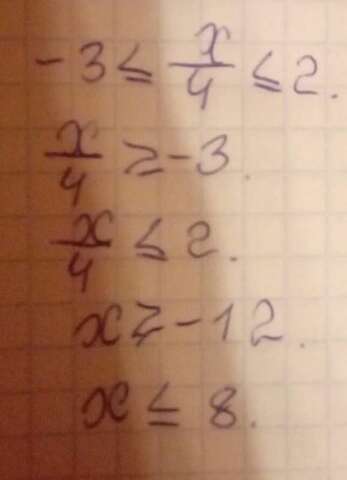 -3 ≤ x/4 ≤ 2.
x/4 ≥ -3.
x/4 ≤ 2.
x ≥ -12.
x ≤ 8.